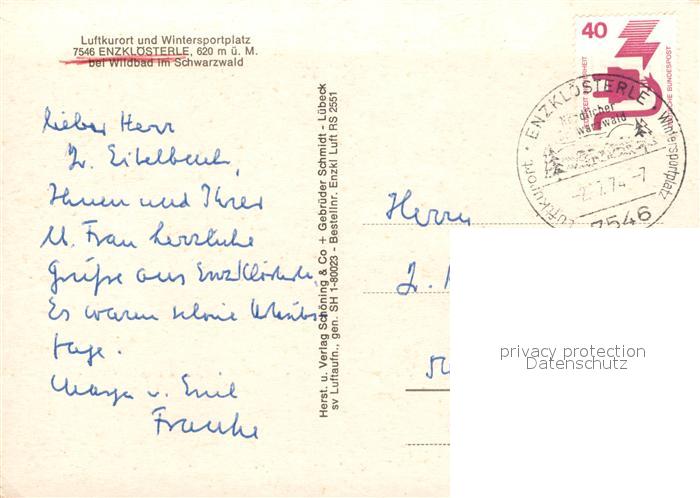 Luftkurort und Wintersportplatz
7546 ENZKLÖSTERLE, 620 m ü. M.
bei Wildbad im Schwarzwald
Lieber Herr
Ihnen und Ihrer
Frau herzliche
Grüße aus Enzklösterle.
Es waren schöne Urlaubs
tage.
u. Emil
Franke
Herst. u. Verlag Schöning & Co + Gebrüder Schmidt - Lübeck
sv Luftaufn., gen. SH 1-80023 - Bestellnr. Enzkl Luft RS 2551
40
DEUTSCHE BUNDESPOST
ENZKLÖSTERLE · Wintersportplatz
Luftkurort
Nördlicher
Schwarzwald
7.74.-7
7546
Herrn
privacy protection
Datenschutz